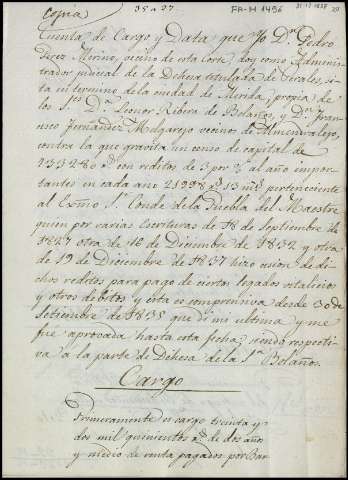 Copia
35 a 37
FA-M 1496
Cuenta de Cargo y Data que Yo Dn. Pedro
Perez Merino, vecino de esta Corte, doy como Adminis-
trador judicial de la Dehesa titulada de Perales, si-
ta in termino de la ciudad de Merida, propia de
los Sres Da. Leonor Ribera de Bolaños, y Dn. Fran-
cisco Fernandez Melgarejo vecinos de Almendralejo,
contra la que gravita un censo de capital de
rs. con reditos de 3 por % al año impor-
tantes en cada año 21998 rs 13 ms perteneciente
al Exmo Sr. Conde de la Puebla del Maestre
quien por varias escrituras de 18 de Septiembre de
1827 otra de 16 de Diciembre de 1832 y otra
de 19 de Diciembre de 1837 hizo cesion de di-
chos reditos para pago de ciertos legados vitalicios
y otros debitos y esta es comprensiva desde 30 de
Setiembre de 1835 que di mi ultima y me
fue aprovada hasta esta fecha, siendo respecti-
va a la parte de Dehesa de la Sra. Bolaños.
Cargo
Primeramente es cargo treinta y
dos mil quinientos rs. de dos años
y medio de renta pagados por Bar-